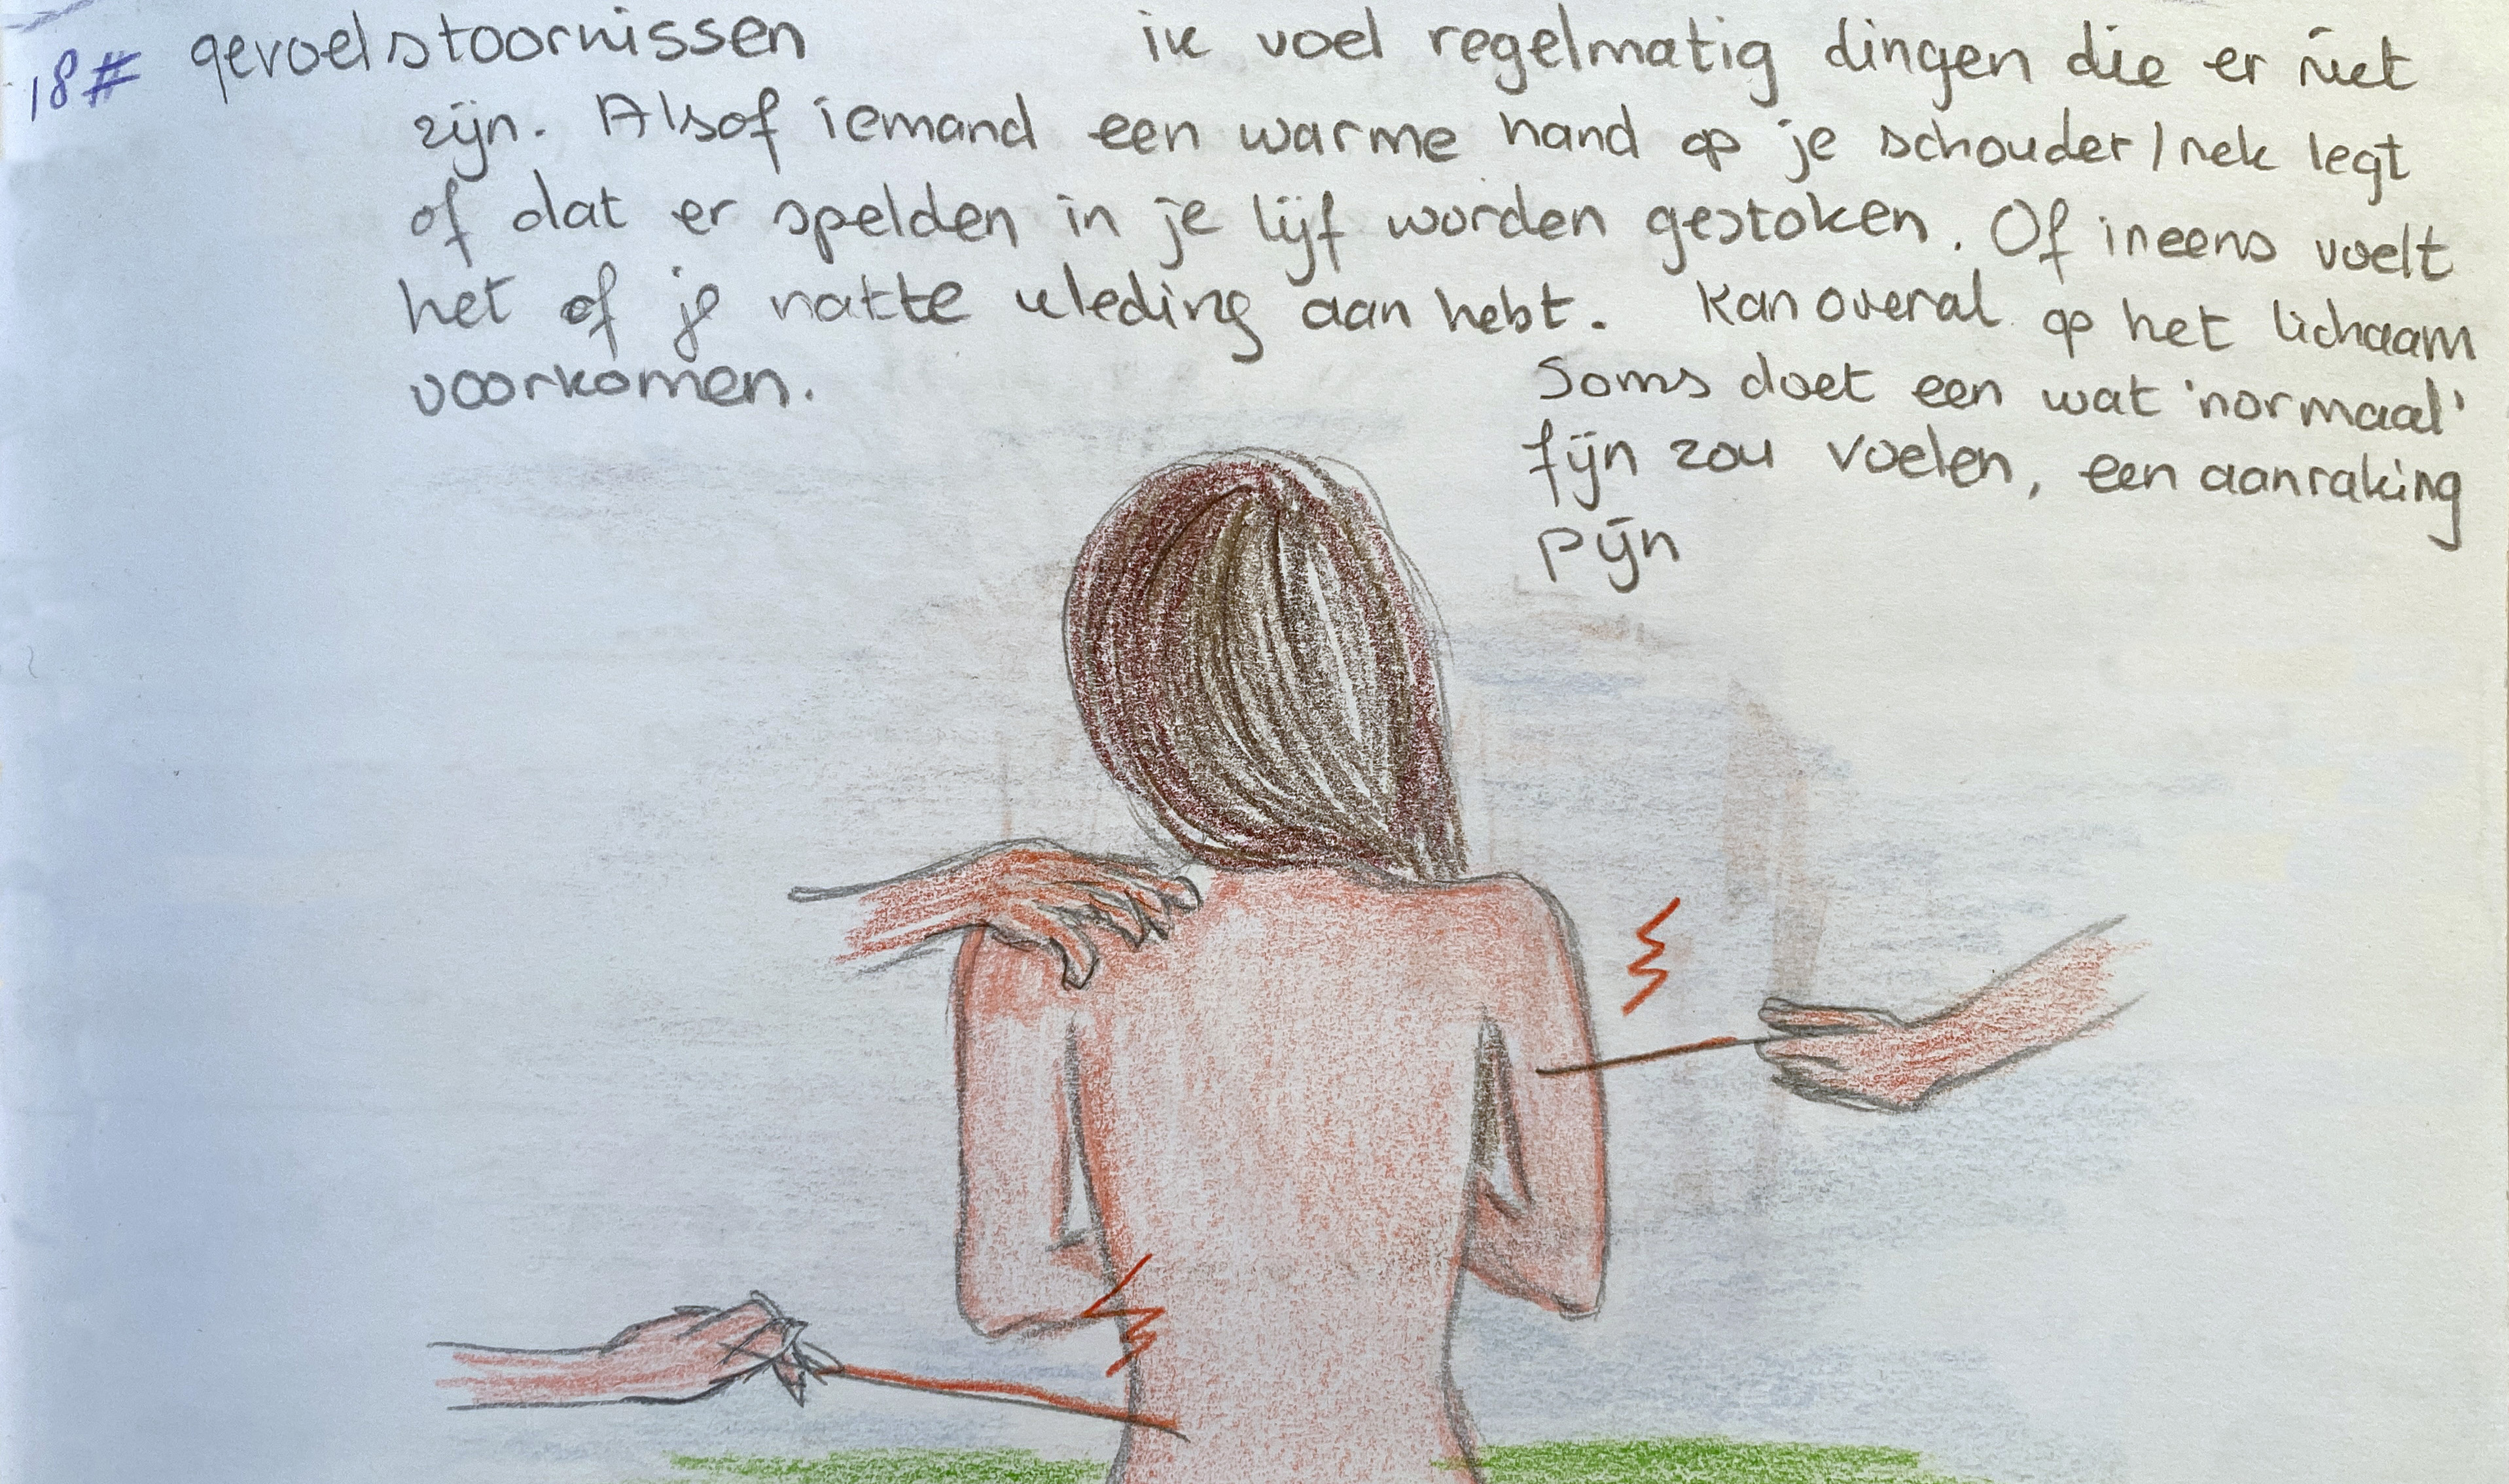 18# gevoelstoornissen ik voel regelmatig dingen die er niet
zijn. Alsof iemand een warme hand op je schouder/nek legt
of dat er spelden in je lijf worden gestoken. Of ineens voelt
het of je natte kleding aan hebt. Kan overal op het lichaam
voorkomen.
Soms doet een wat 'normaal'
fijn zou voelen, een aanraking
pijn